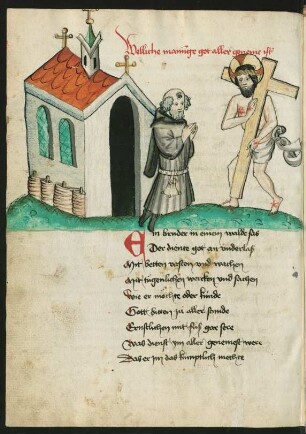 Welliche maninge got aller genemest ist
Ein bruder in einem walde sas
Der diente got an underlas
Mit betten vasten und wachen
Mit tugenlichen wercken und sachen
Wie er mochte oder kunde
Gott bitten zu aller stunde
Ernstlichen mit flis gar sere
Was dienst im aller genemest were
Das er im das kuntlich mechte